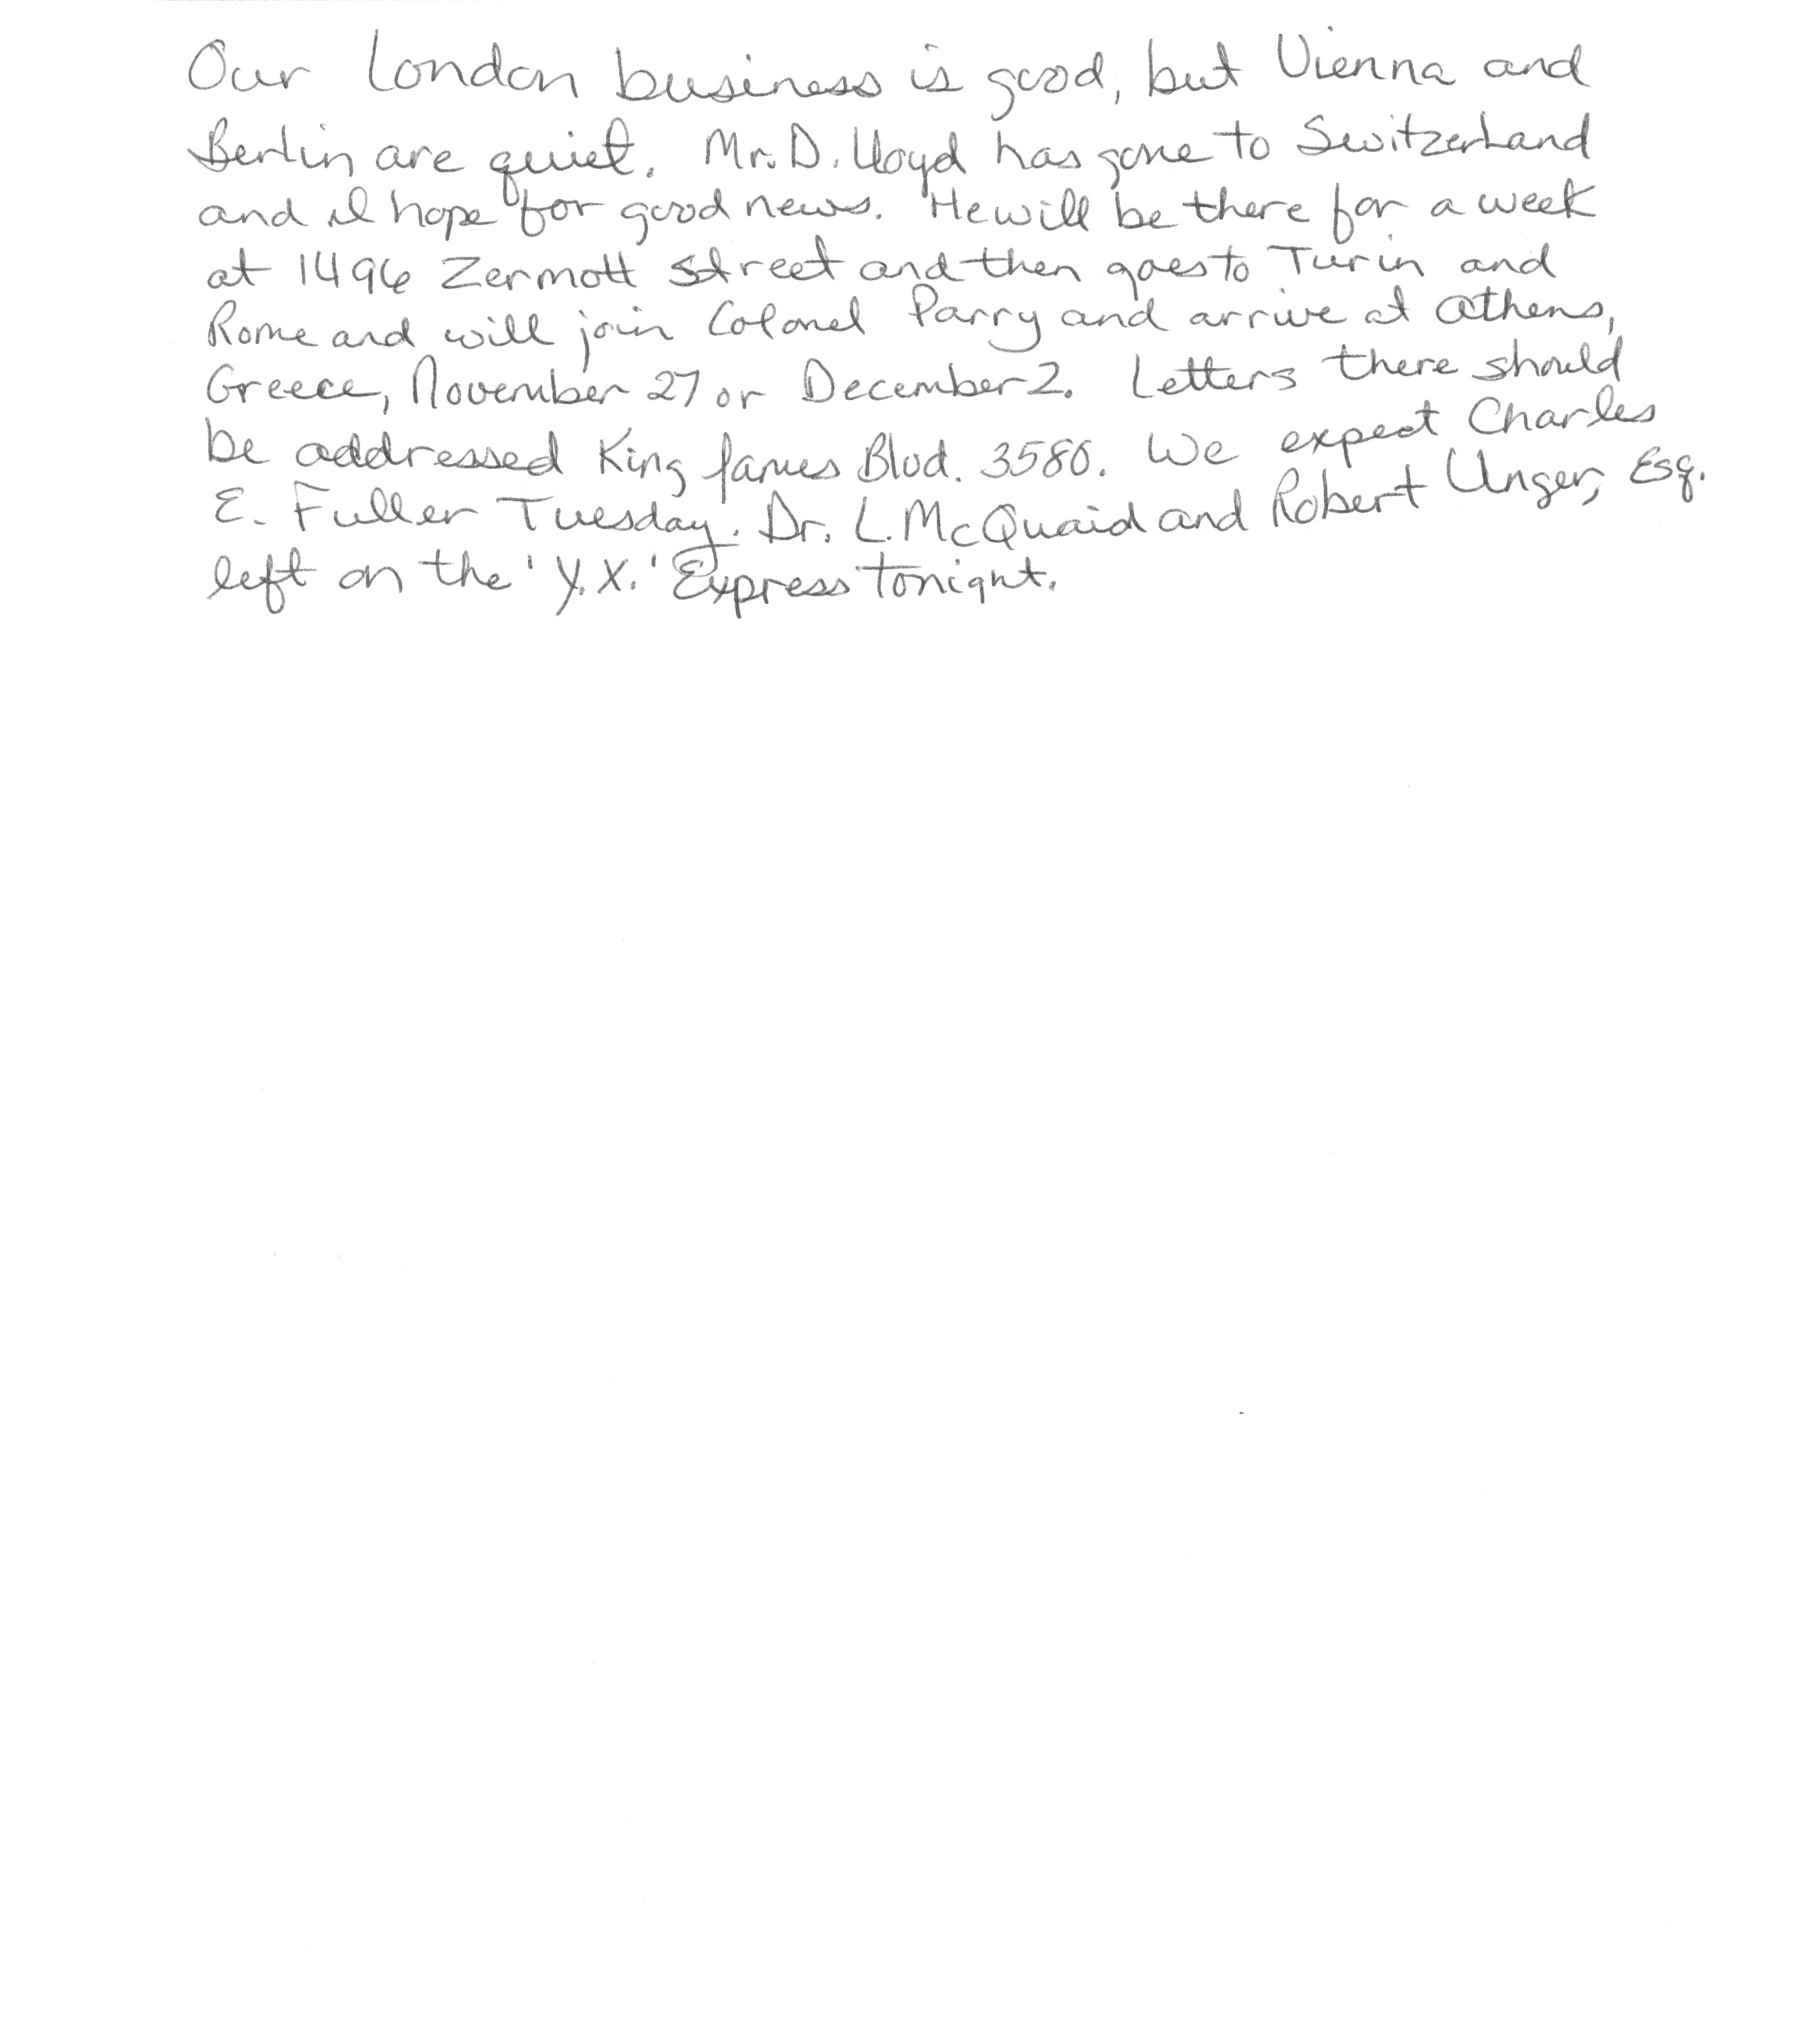 Our London business is good, but Vienna and
Berlin are quiet. Mr. D. Lloyd has gone to Switzerland
and I hope for good news. He will be there for a week
at 1496 Zermott Street and then goes to Turin and
Rome and will join Colonel Parry and arrive at Athens,
Greece, November 27 or December 2. Letters there should
be addressed King James Blvd. 3580. We expect Charles
E. Fuller Tuesday. Dr. L. McQuaid and Robert Unger, Esq.
left on the 'Y.X.' Express tonight.